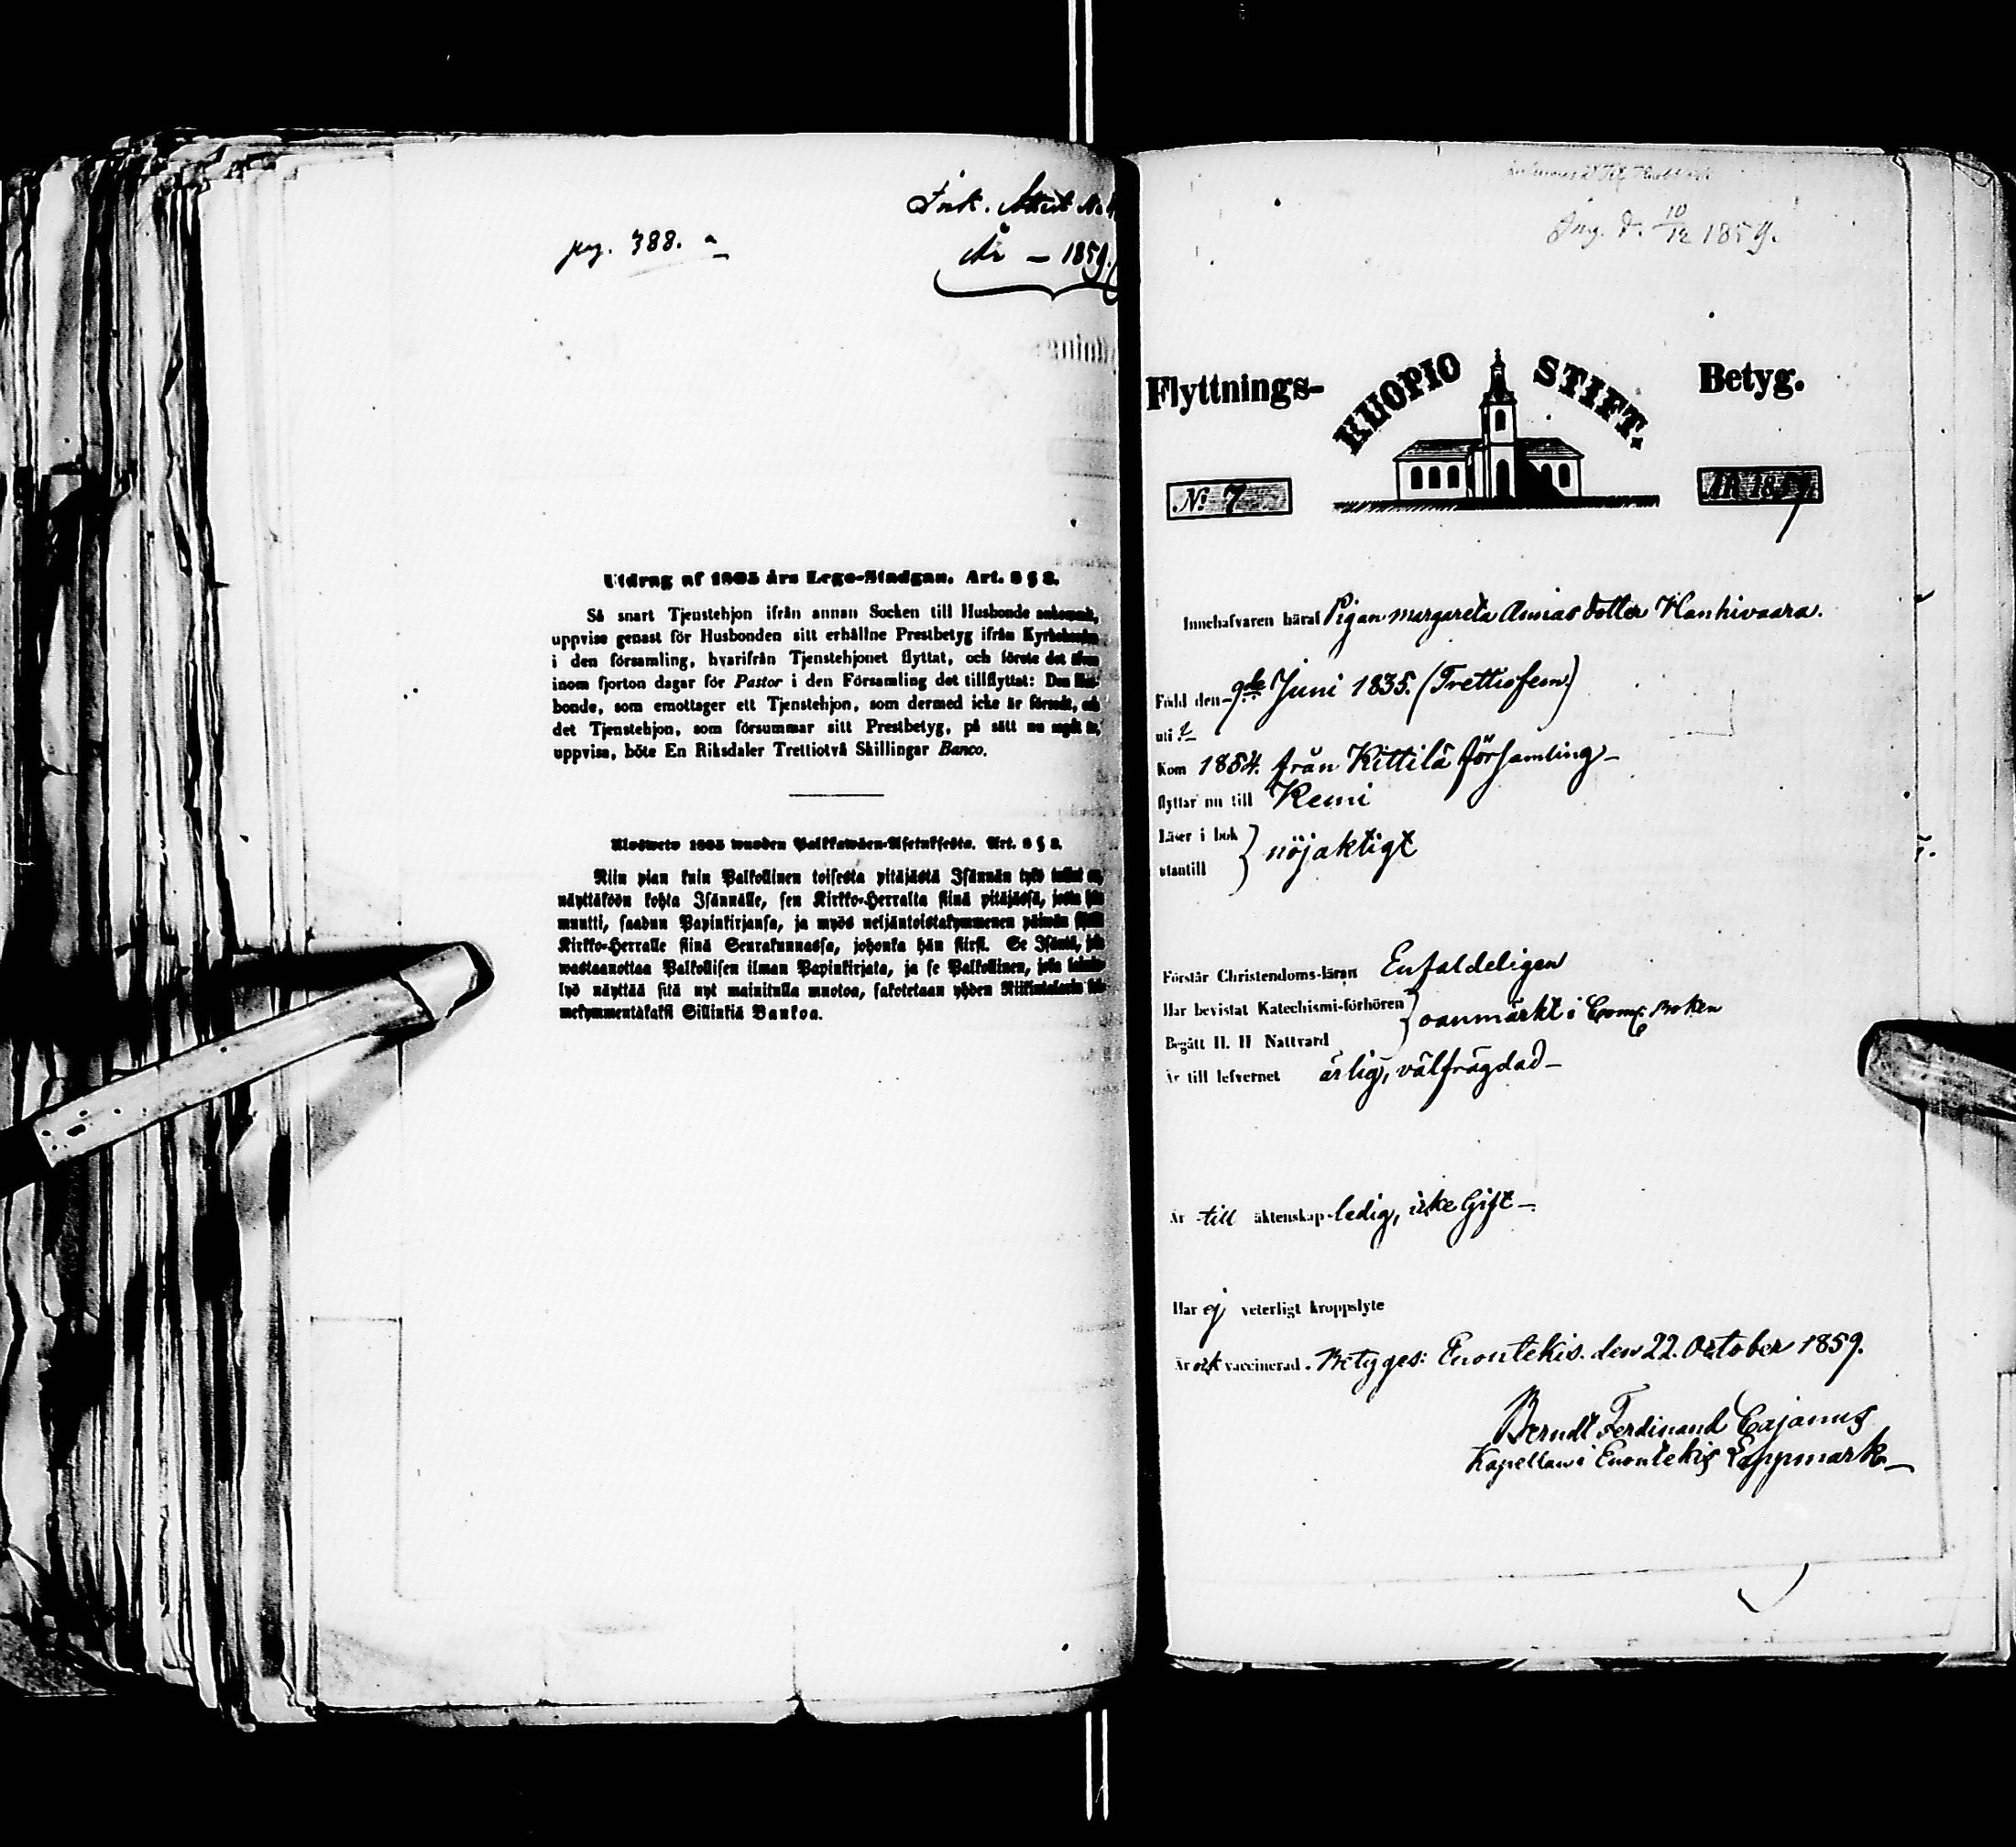 Ink. Attest No
pag. 388. a
År — 1859.
Utdrag af 1805 års Lego-Stadgan. Art. 8 § 2.
Så snart Tjenstehjon ifrån annan Socken till Husbonde ankommit,
uppvise genast för Husbonden sitt erhållne Prestbetyg ifrån
i den församling, hvarifrån Tjenstehjonet flyttat, och förete det
inom fjorton dagar för Pastor i den Församling det tillflyttat: Den Hus-
bonde, som emottager ett Tjenstehjon, som dermed icke är försedt, och
det Tjenstehjon, som försummar sitt Prestbetyg, på sätt nu sagdt är,
uppvisa, böte En Riksdaler Trettiotvå Skillingar Banco.
Ulosweto 1805 wuoden Palkkawäen-Asetuksesta. Art. 8 § 2.
Niin pian kuin Palkollinen toisesta pitäjästä Isännän tykö tullut on,
näyttäköön kohta Isännälle, sen Kirkko-Herralta siinä pitäjässä, josta hän
muutti, saadun Papinkirjansa, ja myös neljäntoistakymmenen päiwän
Kirkko-Herralle siinä Seurakunnassa, johonka hän siirsi. Se Isäntä, joka
wastaanottaa Palkollisen ilman Papinkirjata, ja se Palkollinen, joka
lyö näyttää sitä nyt mainitulla muotoa, sakotetaan yhden Riikintalarin
mekymmentäkaksi Sillinkiä Bankoa.
Ing. d. 10/12 1859.
Flyttnings- KUOPIO STIFT. Betyg.
No 7 ÅR 1859
Innehafvaren häraf Pigan Margareta Annias dotter Hanhivaara.
Född den 9de Juni 1835. (Trettiofem)
uti ?
Kom 1854. från Kittilä församling
flyttar nu till Kemi
Läser i bok
utantill } nöjaktigt
Förstår Christendoms-läran Enfaldeligen
Har bevistat Katechismi-förhören
Begått H. H Nattvard } oanmärkt i Com. Boken
Är till lefvernet ärlig, välfrägdad
Är till äktenskap ledig, icke Gift
Har ej veterligt kroppslyte
Är ock vaccinerad. Betyges: Enontekis. den 22. October 1859.
Berndt Ferdinand Cajanus
Kapellan i Enontekis Lappmark